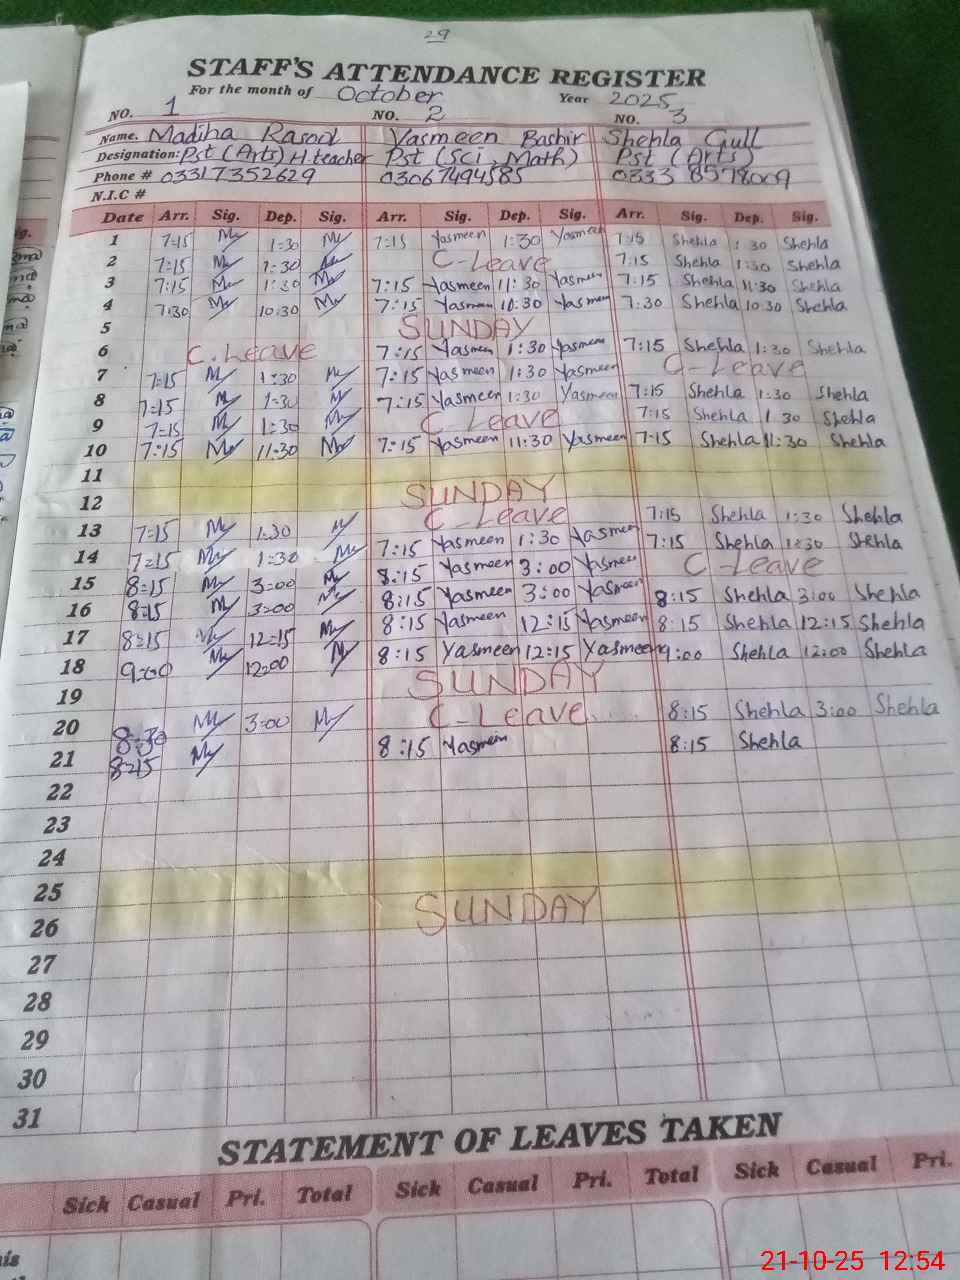 29
STAFF'S ATTENDANCE REGISTER
For the month of October Year 2025
NO. 1 NO. 2 NO. 3
Name. Madiha Rasool Yasmeen Bashir Shehla Gull
Designation: Pst (Arts) H.teacher Pst (Sci, Math) Pst (Arts)
Phone # 03317352629 03067494585 0333 8578009
N.I.C #
Date Arr. Sig. Dep. Sig. Arr. Sig. Dep. Sig. Arr. Sig. Dep. Sig.
1 7:15 1:30 7:15 Yasmeen 1:30 Yasmeen 7:15 Shehla 1:30 Shehla
2 7:15 1:30 C-Leave 7:15 Shehla 1:30 Shehla
3 7:15 1:30 7:15 Yasmeen 11:30 Yasmeen 7:15 Shehla 11:30 Shehla
4 7:30 10:30 7:15 Yasmeen 10:30 Yasmeen 7:30 Shehla 10:30 Shehla
5 SUNDAY
6 C.Leave 7:15 Yasmeen 1:30 Yasmeen 7:15 Shehla 1:30 Shehla
7 7:15 1:30 7:15 Yasmeen 1:30 Yasmeen C-Leave
8 7:15 1:30 7:15 Yasmeen 1:30 Yasmeen 7:15 Shehla 1:30 Shehla
9 7:15 1:30 C-Leave 7:15 Shehla 1:30 Shehla
10 7:15 11:30 7:15 Yasmeen 11:30 Yasmeen 7:15 Shehla 11:30 Shehla
11
12 SUNDAY
13 7:15 1:30 C-Leave 7:15 Shehla 1:30 Shehla
14 7:15 1:30 7:15 Yasmeen 1:30 Yasmeen 7:15 Shehla 1:30 Shehla
15 8:15 3:00 8:15 Yasmeen 3:00 Yasmeen C-Leave
16 8:15 3:00 8:15 Yasmeen 3:00 Yasmeen 8:15 Shehla 3:00 Shehla
17 8:15 12:15 8:15 Yasmeen 12:15 Yasmeen 8:15 Shehla 12:15 Shehla
18 9:00 12:00 8:15 Yasmeen 12:15 Yasmeen 9:00 Shehla 12:00 Shehla
19 SUNDAY
20 8:30 3:00 C-Leave 8:15 Shehla 3:00 Shehla
21 8:15 8:15 Yasmein 8:15 Shehla
22
23
24
25
26 SUNDAY
27
28
29
30
31
STATEMENT OF LEAVES TAKEN
Sick Casual Pri. Total Sick Casual Pri. Total Sick Casual Pri.
21-10-25 12:54